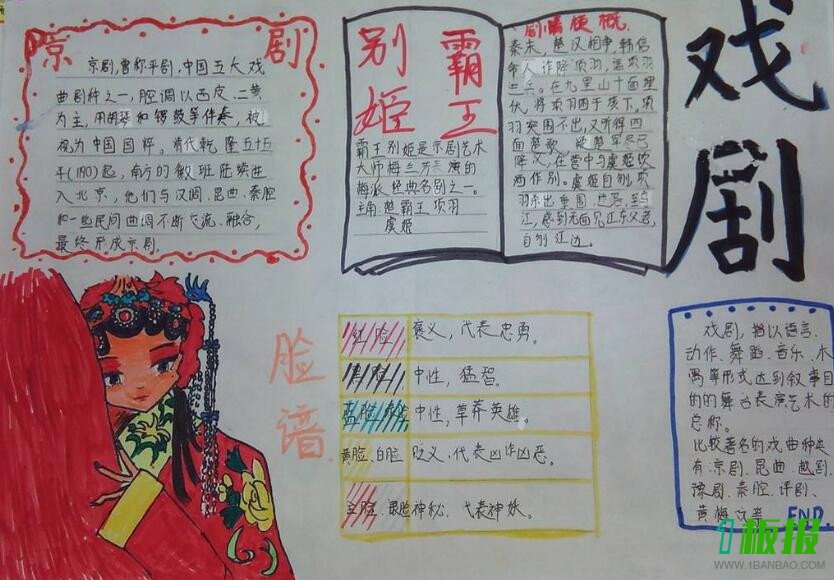 京 剧
京剧,曾称平剧,中国五大戏
曲剧种之一,腔调以西皮、二黄
为主,用胡琴和锣鼓等伴奏,被
视为中国国粹。清代乾隆五十五
年(1790)起,南方的徽班陆续进
入北京,他们与汉调、昆曲、秦腔
和一些民间曲调不断交流、融合,
最终形成京剧。
霸王
别姬
霸王别姬是京剧艺术
大师梅兰芳表演的
梅派经典名剧之一。
主角是楚霸王项羽
虞姬
剧情梗概
秦末,楚汉相争,韩信
命人诈降项羽,诓项羽
进兵。在九里山十面埋
伏,将项羽困于垓下。项
羽突围不出,又听得四
面楚歌,疑楚军尽已
降汉,在营中与虞姬饮
酒作别。虞姬自刎,项
羽杀出重围,迷路,至乌
江,感到无面见江东父老,
自刎江边。
戏剧
脸谱
红脸 褒义,代表忠勇。
黑脸 中性,猛智。
蓝脸 中性,草莽英雄。
黄脸、白脸 贬义,代表凶诈凶恶。
金脸、银脸 神秘,代表神妖。
戏剧,指以语言、
动作、舞蹈、音乐、木
偶等形式达到叙事目
的的舞台表演艺术的
总称。
比较著名的戏曲种类
有:京剧、昆曲、越剧、
豫剧、秦腔、评剧、
黄梅戏等 END.
1板报
WWW.1BANBAO.COM